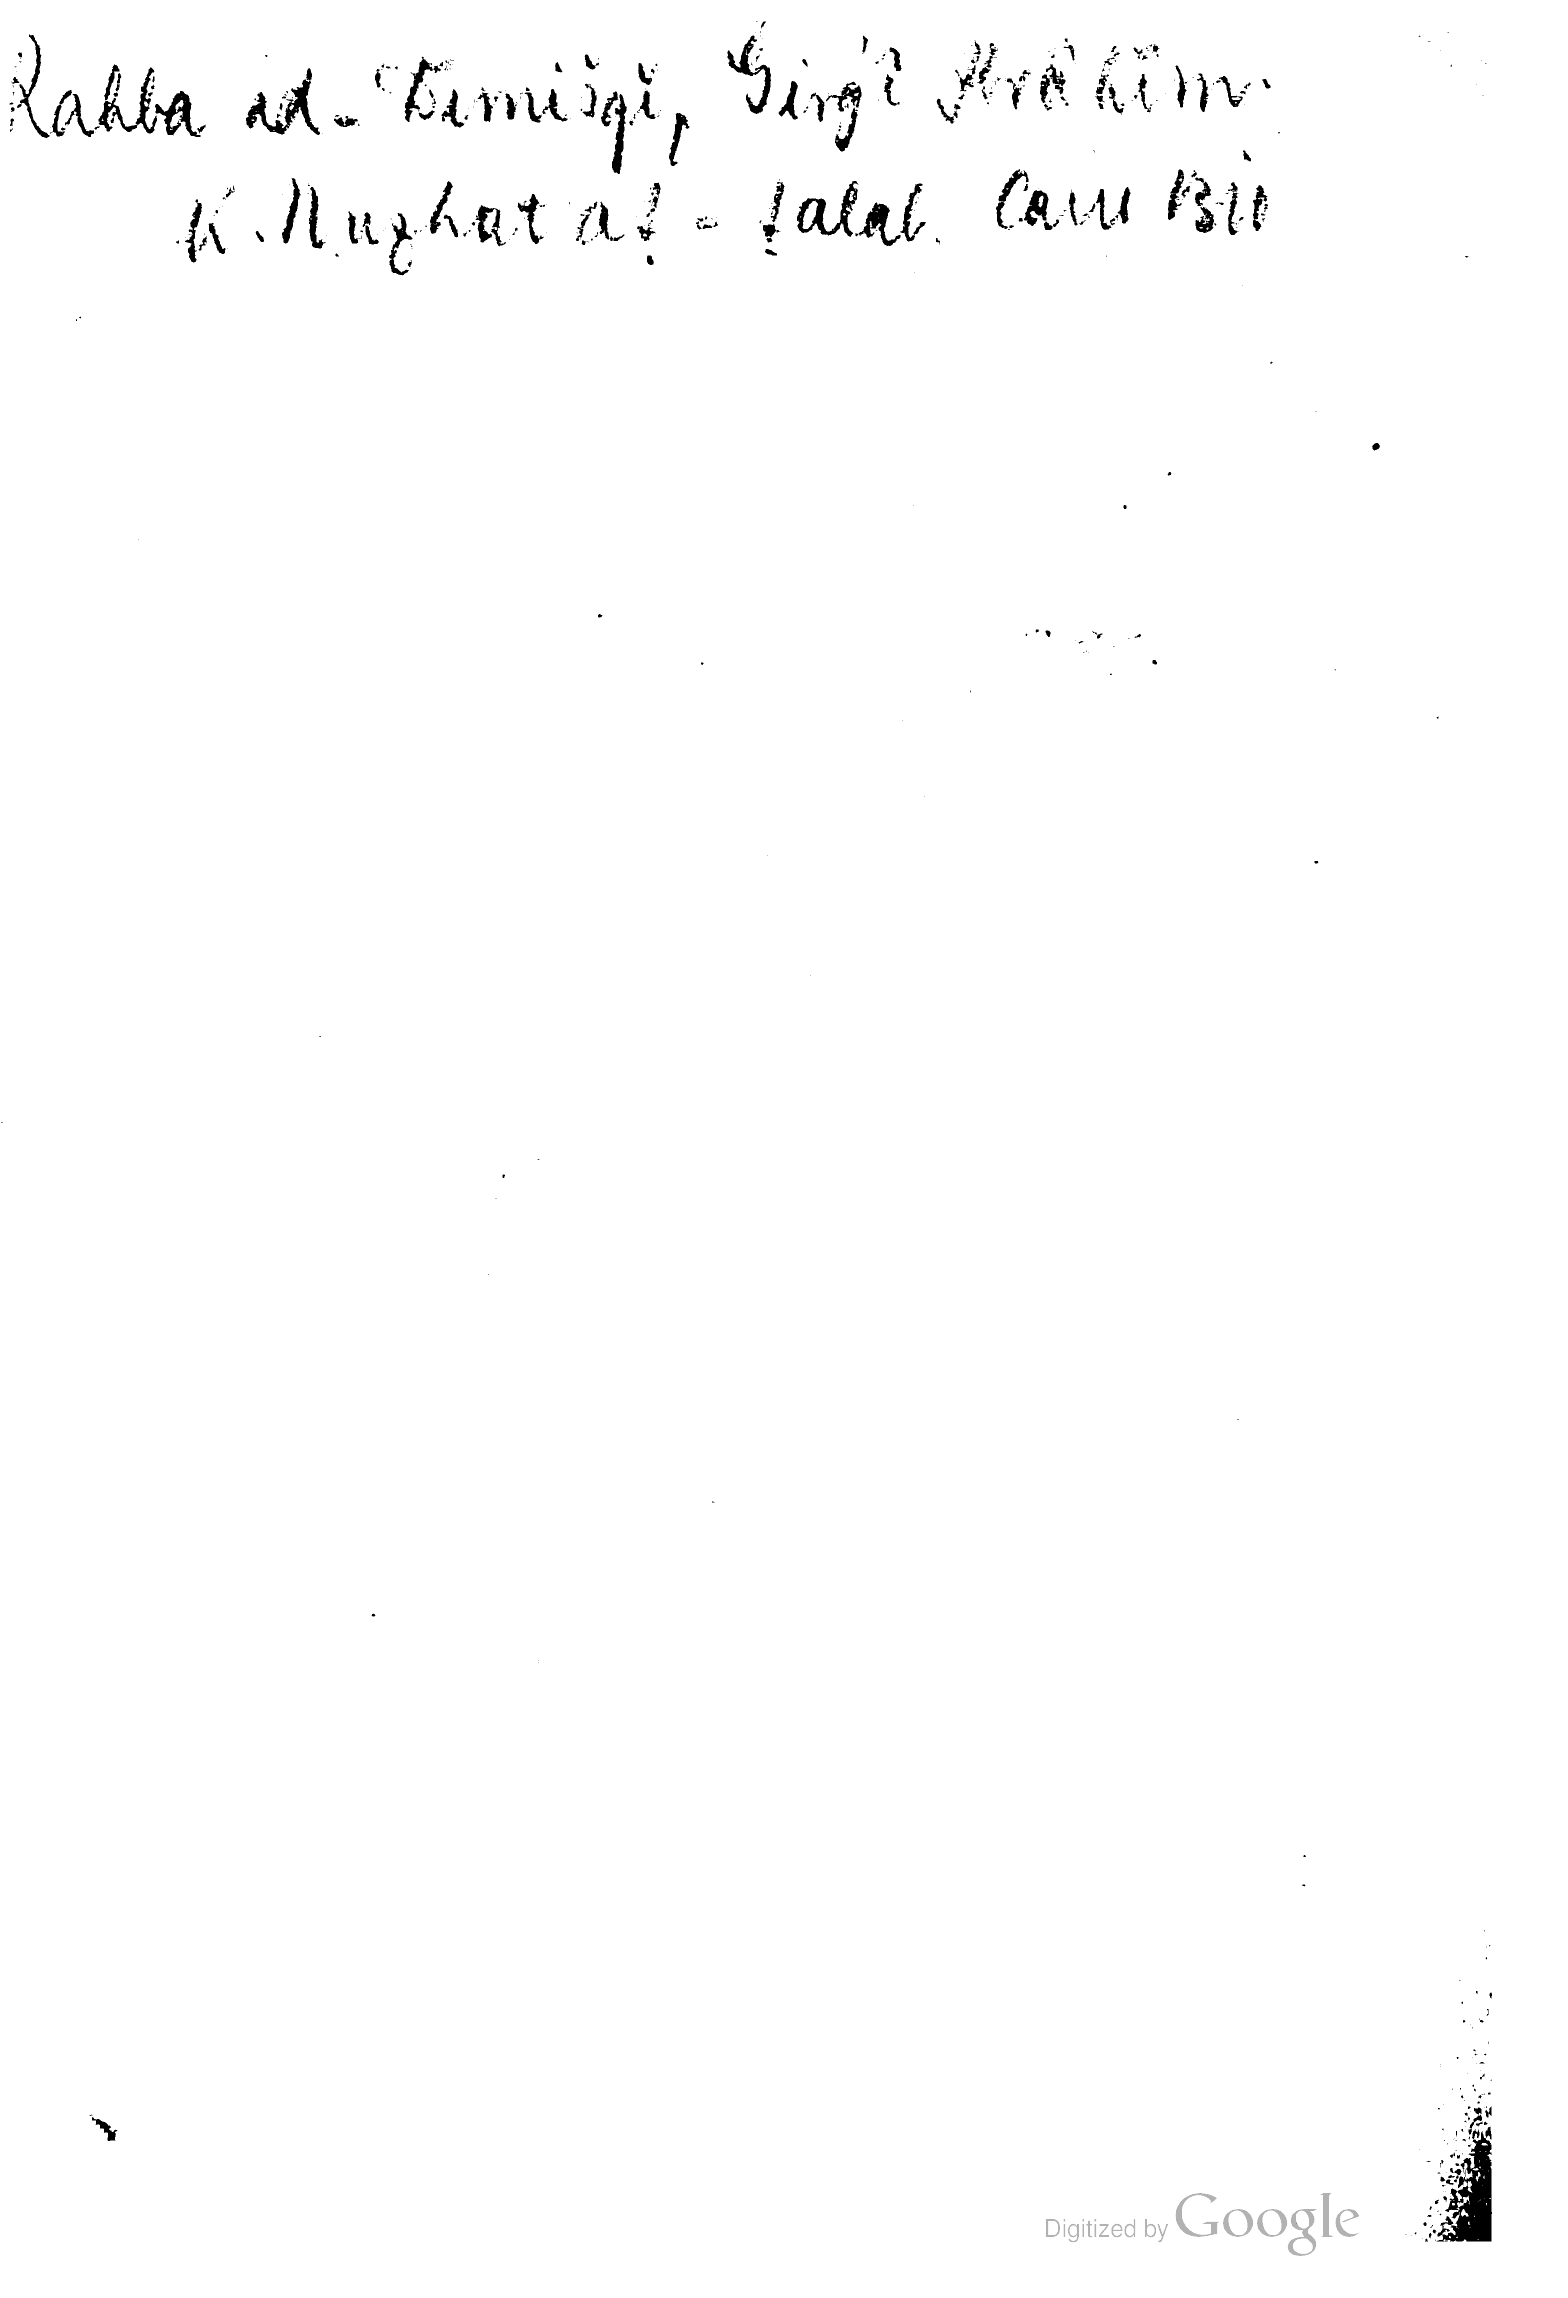 Rahba ad-Dimišqî, Ǧirǧî Ibrâhîm.
K. Nuzhat aṭ-ṭalab. Cairo 1310
Digitized by Google